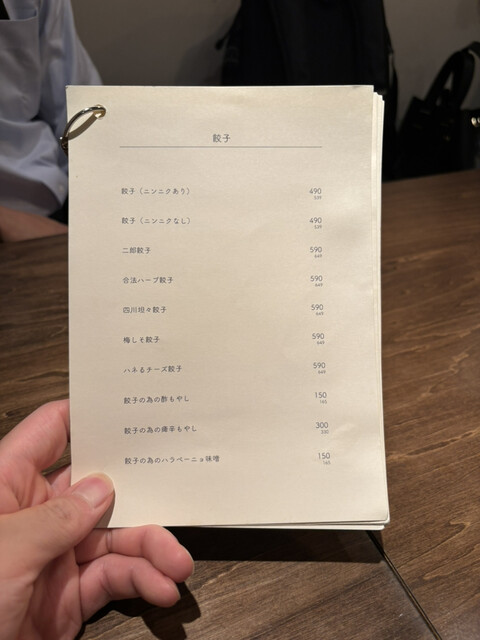 餃子
餃子（ニンニクあり） 490
539
餃子（ニンニクなし） 490
539
二郎餃子 590
649
合法ハーブ餃子 590
649
四川坦々餃子 590
649
梅しそ餃子 590
649
ハネるチーズ餃子 590
649
餃子の為の酢もやし 150
165
餃子の為の痺辛もやし 300
330
餃子の為のハラペーニョ味噌 150
165